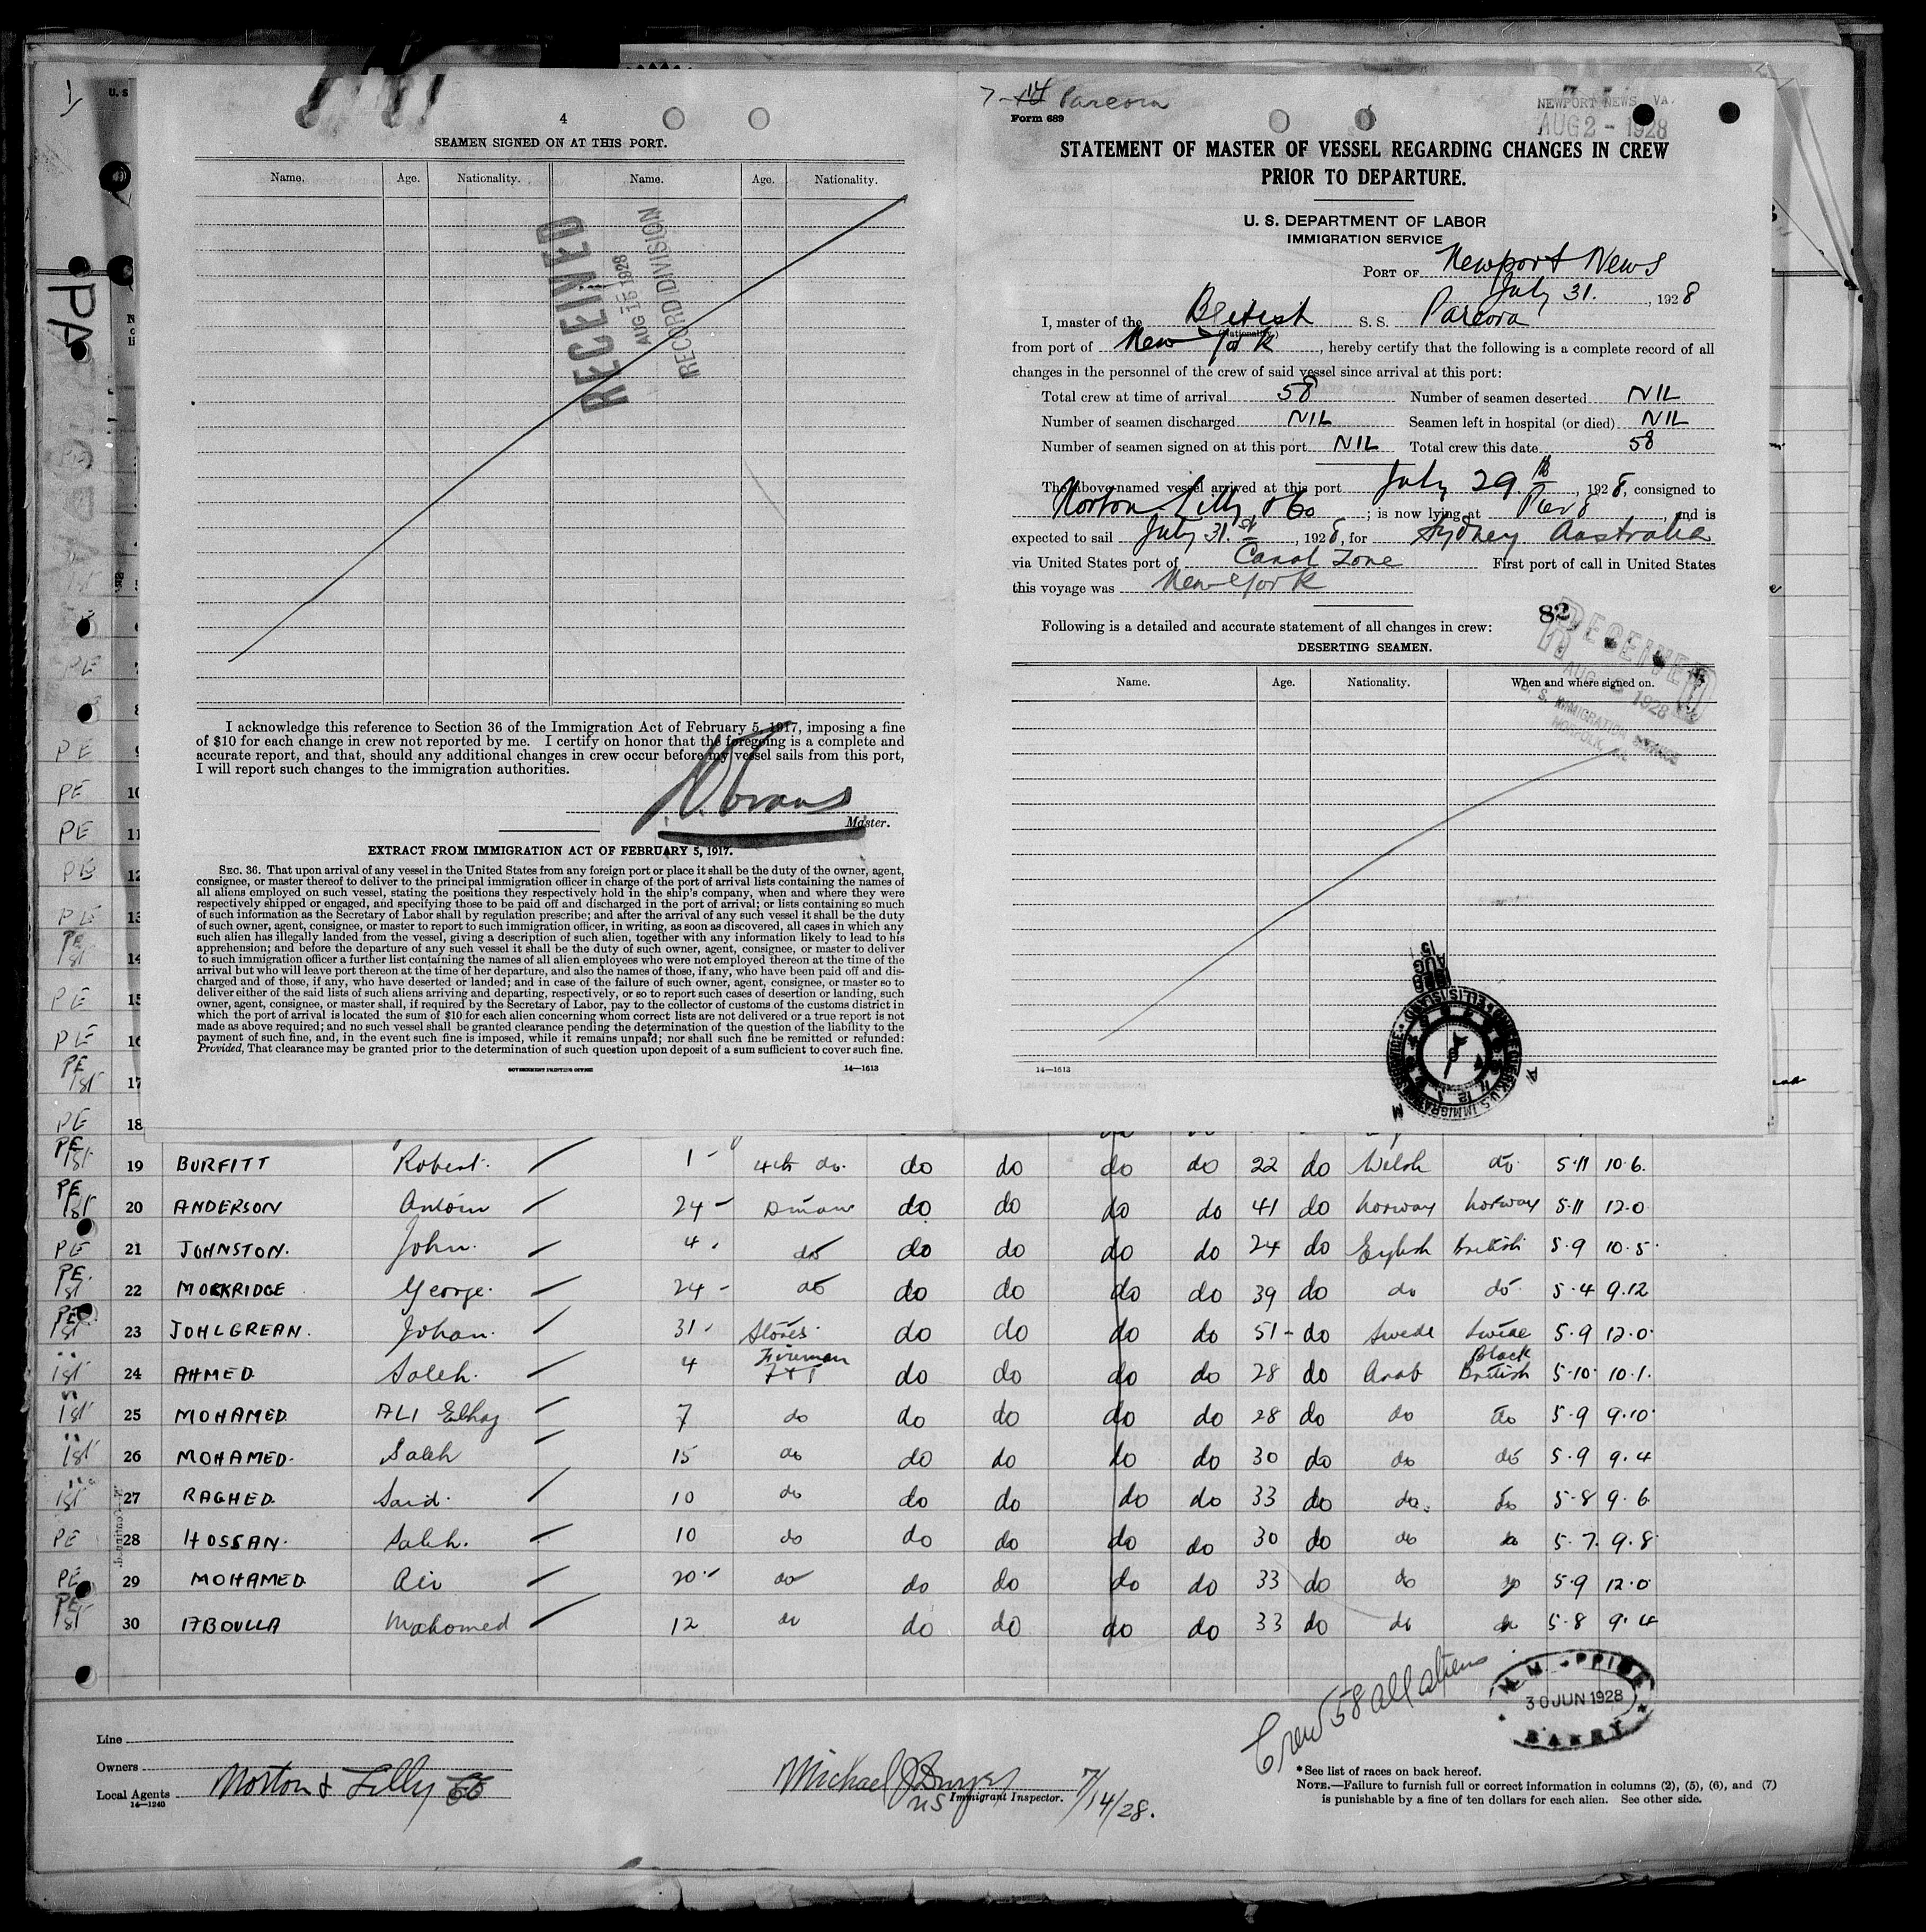 4
SEAMEN SIGNED ON AT THIS PORT.
Name. Age. Nationality. Name. Age. Nationality.
RECEIVED
AUG 15 1928
RECORD DIVISION
I acknowledge this reference to Section 36 of the Immigration Act of February 5, 1917, imposing a fine
of $10 for each change in crew not reported by me. I certify on honor that the foregoing is a complete and
accurate report, and that, should any additional changes in crew occur before my vessel sails from this port,
I will report such changes to the immigration authorities.
Evans
Master.
EXTRACT FROM IMMIGRATION ACT OF FEBRUARY 5, 1917.
SEC. 36. That upon arrival of any vessel in the United States from any foreign port or place it shall be the duty of the owner, agent,
consignee, or master thereof to deliver to the principal immigration officer in charge of the port of arrival lists containing the names of
all aliens employed on such vessel, stating the positions they respectively hold in the ship's company, when and where they were
respectively shipped or engaged, and specifying those to be paid off and discharged in the port of arrival; or lists containing so much
of such information as the Secretary of Labor shall by regulation prescribe; and after the arrival of any such vessel it shall be the duty
of such owner, agent, consignee, or master to report to such immigration officer, in writing, as soon as discovered, all cases in which any
such alien has illegally landed from the vessel, giving a description of such alien, together with any information likely to lead to his
apprehension; and before the departure of any such vessel it shall be the duty of such owner, agent, consignee, or master to deliver
to such immigration officer a further list containing the names of all alien employees who were not employed thereon at the time of the
arrival but who will leave port thereon at the time of her departure, and also the names of those, if any, who have been paid off and dis-
charged and of those, if any, who have deserted or landed; and in case of the failure of such owner, agent, consignee, or master so to
deliver either of the said lists of such aliens arriving and departing, respectively, or so to report such cases of desertion or landing, such
owner, agent, consignee, or master shall, if required by the Secretary of Labor, pay to the collector of customs of the customs district in
which the port of arrival is located the sum of $10 for each alien concerning whom correct lists are not delivered or a true report is not
made as above required; and no such vessel shall be granted clearance pending the determination of the question of the liability to the
payment of such fine, and, in the event such fine is imposed, while it remains unpaid; nor shall such fine be remitted or refunded:
Provided, That clearance may be granted prior to the determination of such question upon deposit of a sum sufficient to cover such fine.
GOVERNMENT PRINTING OFFICE 14—1613
Pareora
Form 689
NEWPORT NEWS, VA.
AUG 2 - 1928
STATEMENT OF MASTER OF VESSEL REGARDING CHANGES IN CREW
PRIOR TO DEPARTURE.
U. S. DEPARTMENT OF LABOR
IMMIGRATION SERVICE
PORT OF Newport News
July 31. , 1928
I, master of the British S. S. Pareora
(Nationality)
from port of New York , hereby certify that the following is a complete record of all
changes in the personnel of the crew of said vessel since arrival at this port:
Total crew at time of arrival 58 Number of seamen deserted NIL
Number of seamen discharged NIL Seamen left in hospital (or died) NIL
Number of seamen signed on at this port NIL Total crew this date 58
The above-named vessel arrived at this port July 29th , 1928, consigned to
Norton Lilly & Co ; is now lying at Pier 8 , and is
expected to sail July 31st , 1928, for Sydney Australia
via United States port of Canal Zone First port of call in United States
this voyage was New York
82
Following is a detailed and accurate statement of all changes in crew:
DESERTING SEAMEN.
RECEIVED
AUG 1928
U. S. IMMIGRATION SERVICE
NORFOLK, VA.
Name. Age. Nationality. When and where signed on.
14—1613
19 BURFITT Robert. 1 4th do. do do do do 22 do Welsh do 5.11 10.6.
20 ANDERSON Antoin 24 do do do do 41 do Norway Norway 5.11 12.0
21 JOHNSTON. John. 4 do do do do do 24 do English British 5.9 10.5
22 MOCKRIDGE George. 24 do do do do do 39 do do do 5.4 9.12
23 JOHLGREAN. Johan. 31 Stores do do do do 51 do Swede Swede 5.9 12.0
24 AHMED. Saleh. 4 Fireman do do do do 28 do Arab Black British 5.10 10.1.
25 MOHAMED. ALI Elhaj 7 do do do do do 28 do do do 5.9 9.10
26 MOHAMED. Saleh 15 do do do do do 30 do do do 5.9 9.4
27 RAGHED. Said. 10 do do do do do 33 do do. do 5.8 9.6
28 HOSSAN. Saleh. 10 do do do do do 30 do do do 5.7. 9.8
29 MOHAMED. Air 20 do do do do do 33 do do do 5.9 12.0
30 ABOULLA Mohomed 12 do do do do do 33 do do do 5.8 9.4
Crew 58 all aliens
30 JUN 1928
BARRY
Line
Owners
Local Agents Norton & Lilly Co
14—1240
Michael J Dwyer
US Immigrant Inspector. 7/14/28.
*See list of races on back hereof.
NOTE.—Failure to furnish full or correct information in columns (2), (5), (6), and (7)
is punishable by a fine of ten dollars for each alien. See other side.